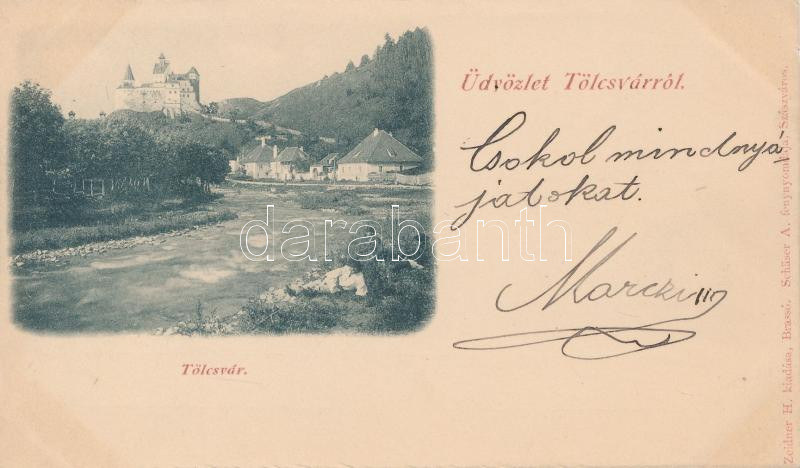 Üdvözlet Tölcsvárról.
Csokol mindnyá-
jatokat.
Marczi
Tölcsvár.
Zeidner H. kiadása, Brassó. Schäser A. fénynyomdája, Szászváros.
darabanth